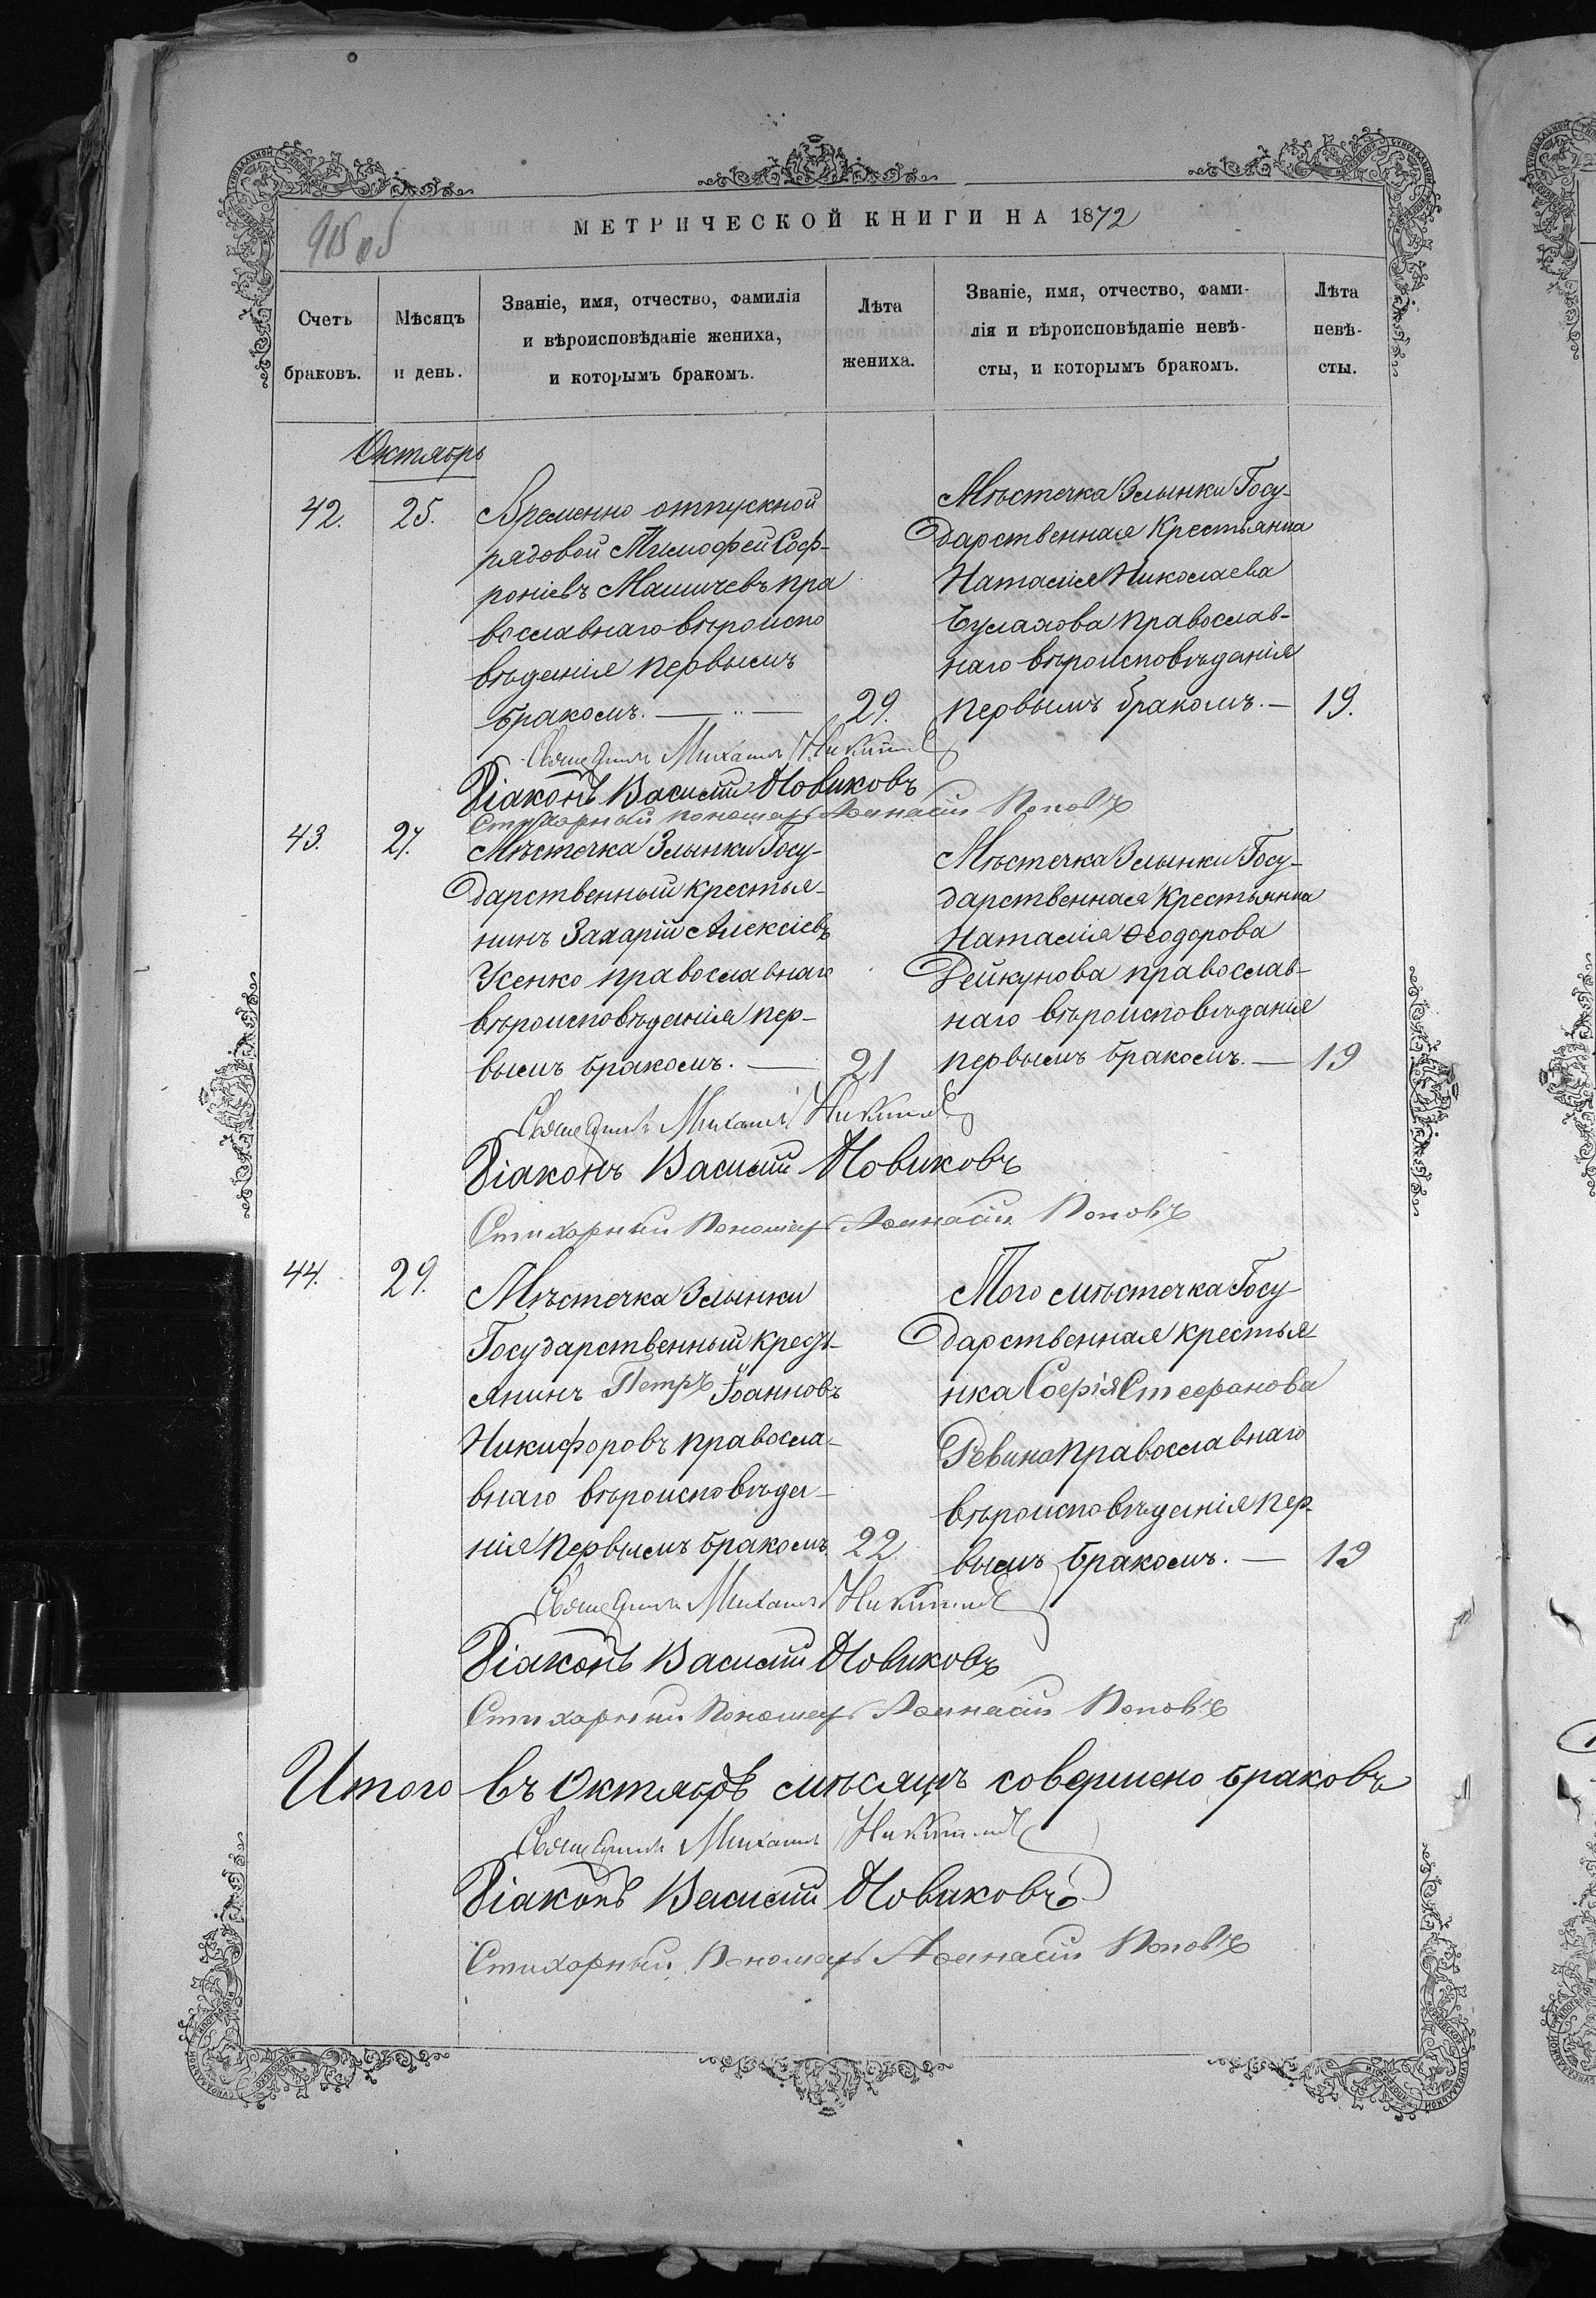 915 об
МЕТРИЧЕСКОЙ КНИГИ НА 1872
Счетъ
браковъ.
Мѣсяцъ
и день.
Званіе, имя, отчество, фамилія
и вѣроисповѣданіе жениха,
и которымъ бракомъ.
Лѣта
жениха.
Званіе, имя, отчество, фами-
лія и вѣроисповѣданіе невѣ-
сты, и которымъ бракомъ.
Лѣта
невѣ-
сты.
Октябрь
42.
25.
Временно отпускной
рядовой Тимофей Соф-
роніевъ Машичевъ пра
вославнаго вѣроиспо
вѣденія первымъ
бракомъ.
29.
Мѣстечка Злынки Госу-
дарственная Крестьянка
Наталія Николаева
Булахова православ-
наго вѣроисповѣданія
первымъ бракомъ.
19.
Священникъ Михаилъ
Діаконъ Василій Новиковъ
Стихарный пономарь Аѳанасій Поповъ
43.
27.
Мѣстечка Злынки Госу-
дарственный крестья-
нинъ Захарій Алексіевъ
Усенко православнаго
вѣроисповѣданія пер-
вымъ бракомъ.
21
Мѣстечка Злынки Госу-
дарственная Крестьянка
Наталія Ѳеодорова
Дейкунова православ-
наго вѣроисповѣданія
первымъ бракомъ.
19
Священникъ Михаилъ
Діаконъ Василій Новиковъ
Стихарный Пономарь Аѳанасій Поповъ
44.
29.
Мѣстечка Злынки
Государственный крест-
янинъ Петръ Іоанновъ
Никифоровъ правосла-
внаго вѣроисповѣда-
нія первымъ бракомъ
22
Того мѣстечка Госу-
дарственная крестья-
нка Софія Стефанова
Ревина православнаго
вѣроисповѣданія пер-
вымъ бракомъ.
19
Священникъ Михаилъ
Діаконъ Василій Новиковъ
Стихарный Пономарь Аѳанасій Поповъ
Итого въ Октябрѣ мѣсяцѣ совершено браковъ
Священникъ Михаилъ
Діаконъ Василій Новиковъ
Стихарный Пономарь Аѳанасій Поповъ